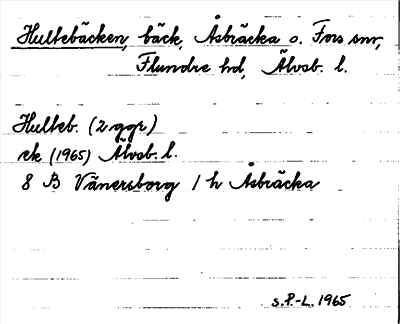 Hultebäcken, bäck, Åsbräcka o. Fors snr,
Flundre hd, Älvsb. l.
Hulteb. (2 ggr)
ek (1965) Älvsb. l.
8 B Vänersborg 1 h Åsbräcka
s.P.-L. 1965